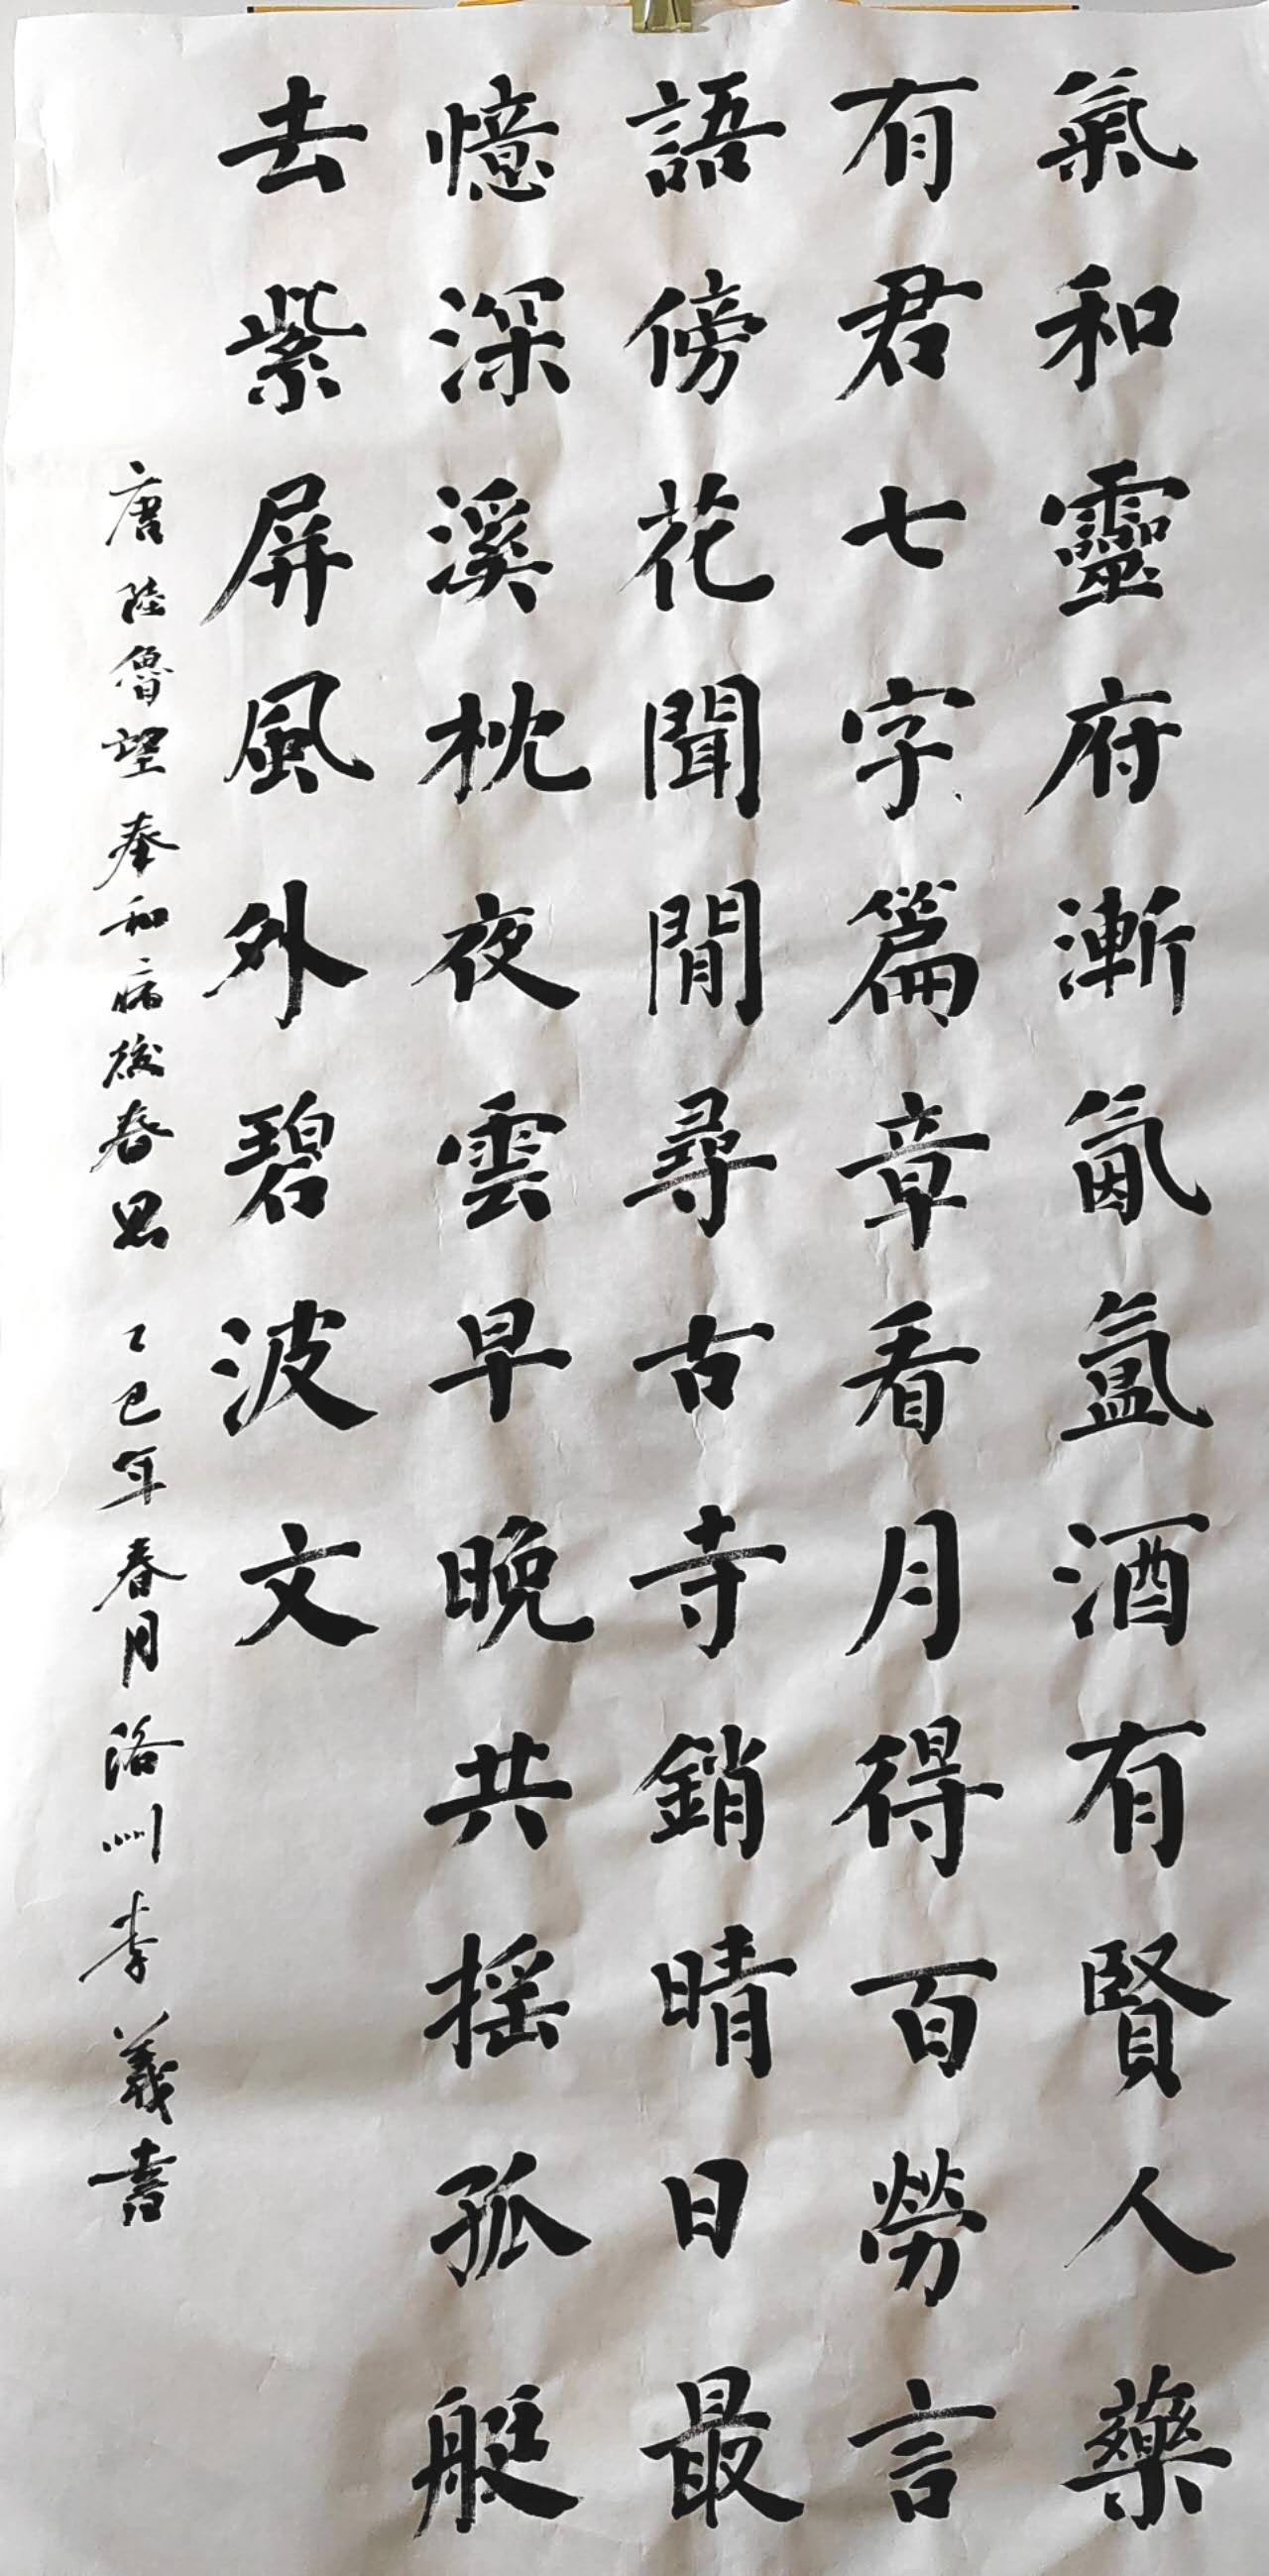 氣和靈府漸氤氳酒有賢人藥
有君七字篇章看月得百勞言
語傍花聞閒尋古寺銷晴日最
憶深溪枕夜雲早晚共搖孤艇
去紫屏風外碧波文
唐陸魯望奉和病後春思 乙巳年春月洺州李義書